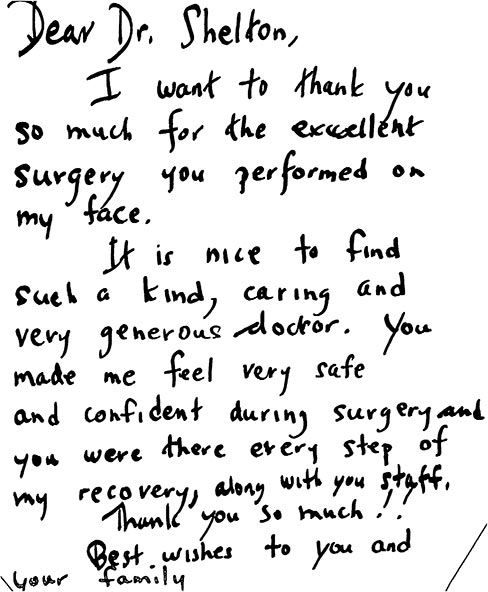 Dear Dr. Shelton,
I want to thank you
so much for the excellent
surgery you performed on
my face.
It is nice to find
such a kind, caring and
very generous doctor. You
made me feel very safe
and confident during surgery and
you were there every step of
my recovery, along with you staff.
Thank you so much!!
Best wishes to you and
your family